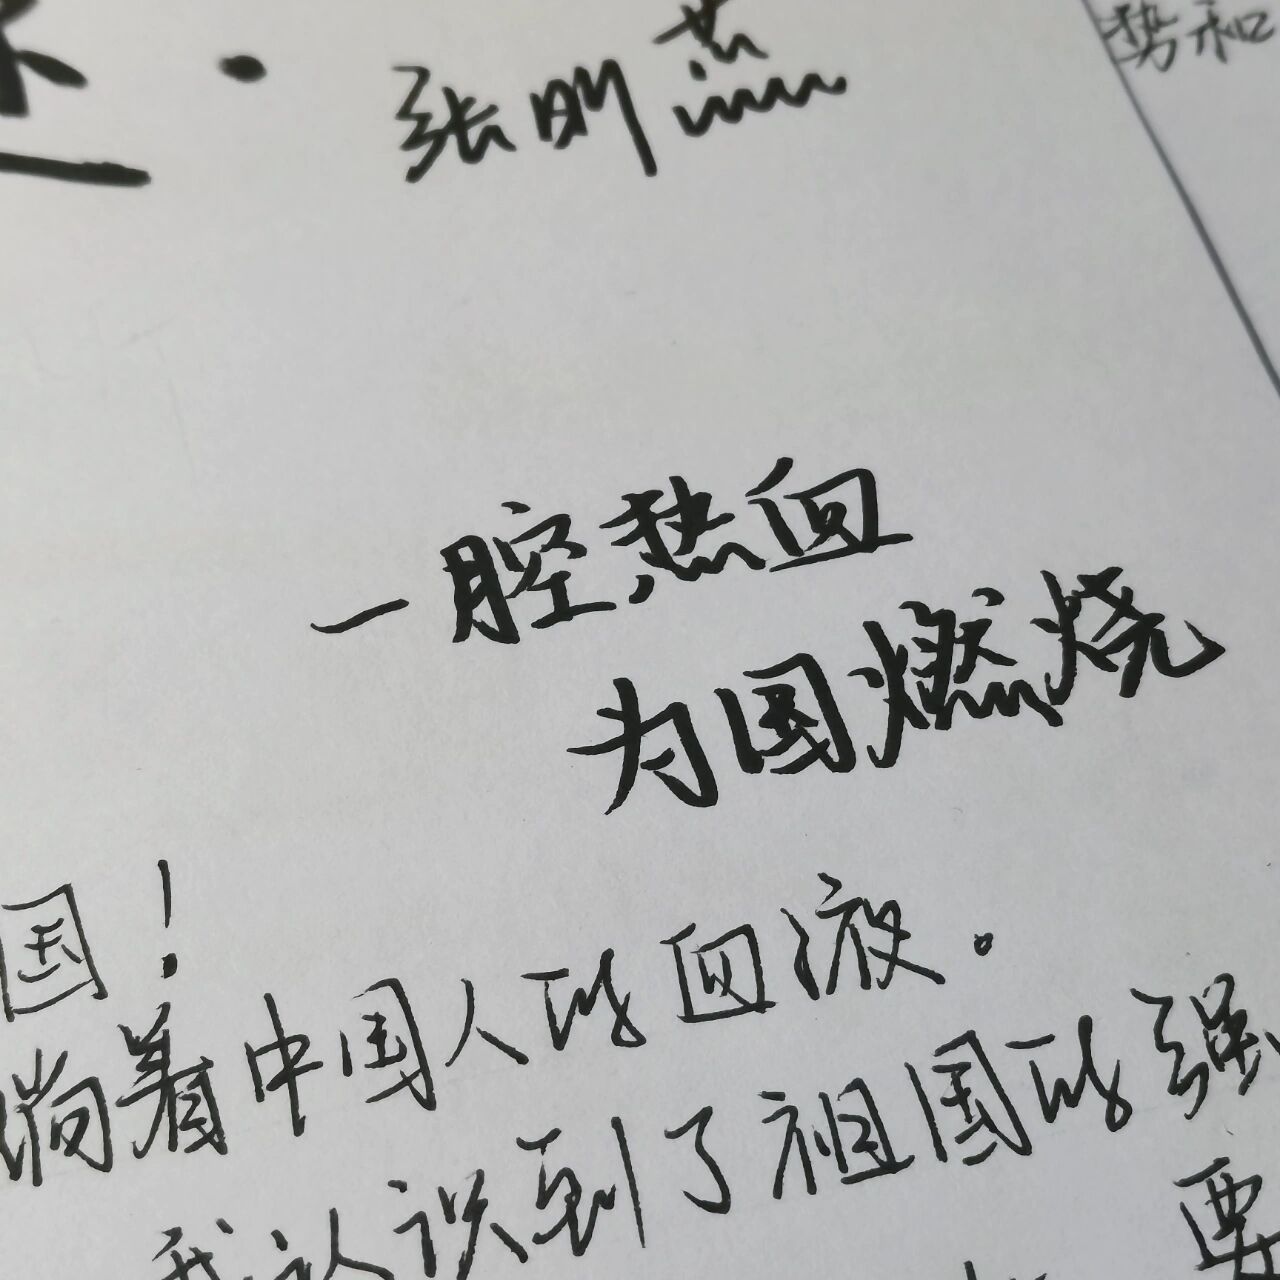 张明燕
势和
一腔热血
为国燃烧
国！
淌着中国人的血液。
我认识到了祖国的强
要